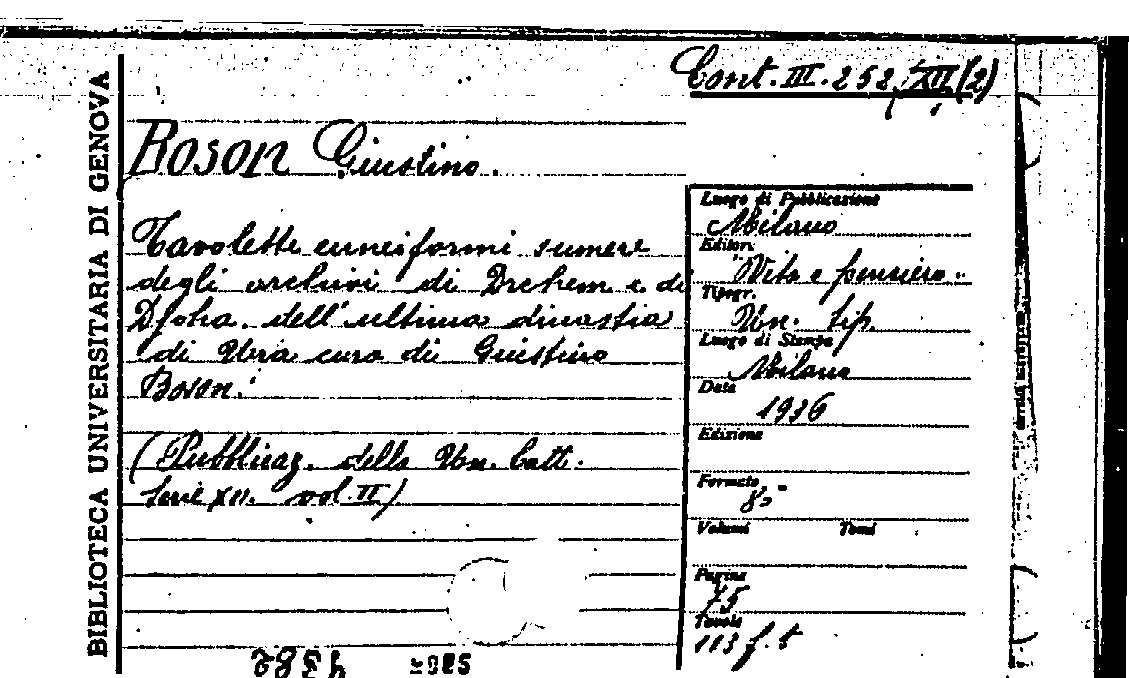 BIBLIOTECA UNIVERSITARIA DI GENOVA
Cont. III. 252, XII (2)
BOSON Giustino.
Tavolette cuneiformi sumere
degli archivi di Drehem e di
Djoha. dell'ultima dinastia
di Ur a cura di Giustino
Boson.
(Pubblicaz. della Un. Catt.
Serie XII. vol. II)
Luogo di Pubblicazione
Milano
Editori
"Vita e pensiero"
Tipogr.
Un. tip.
Luogo di Stampa
Milano
Data
1936
Edizione
Formato
8°
Volumi Tomi
Pagine
75
Tavole
113 f. t